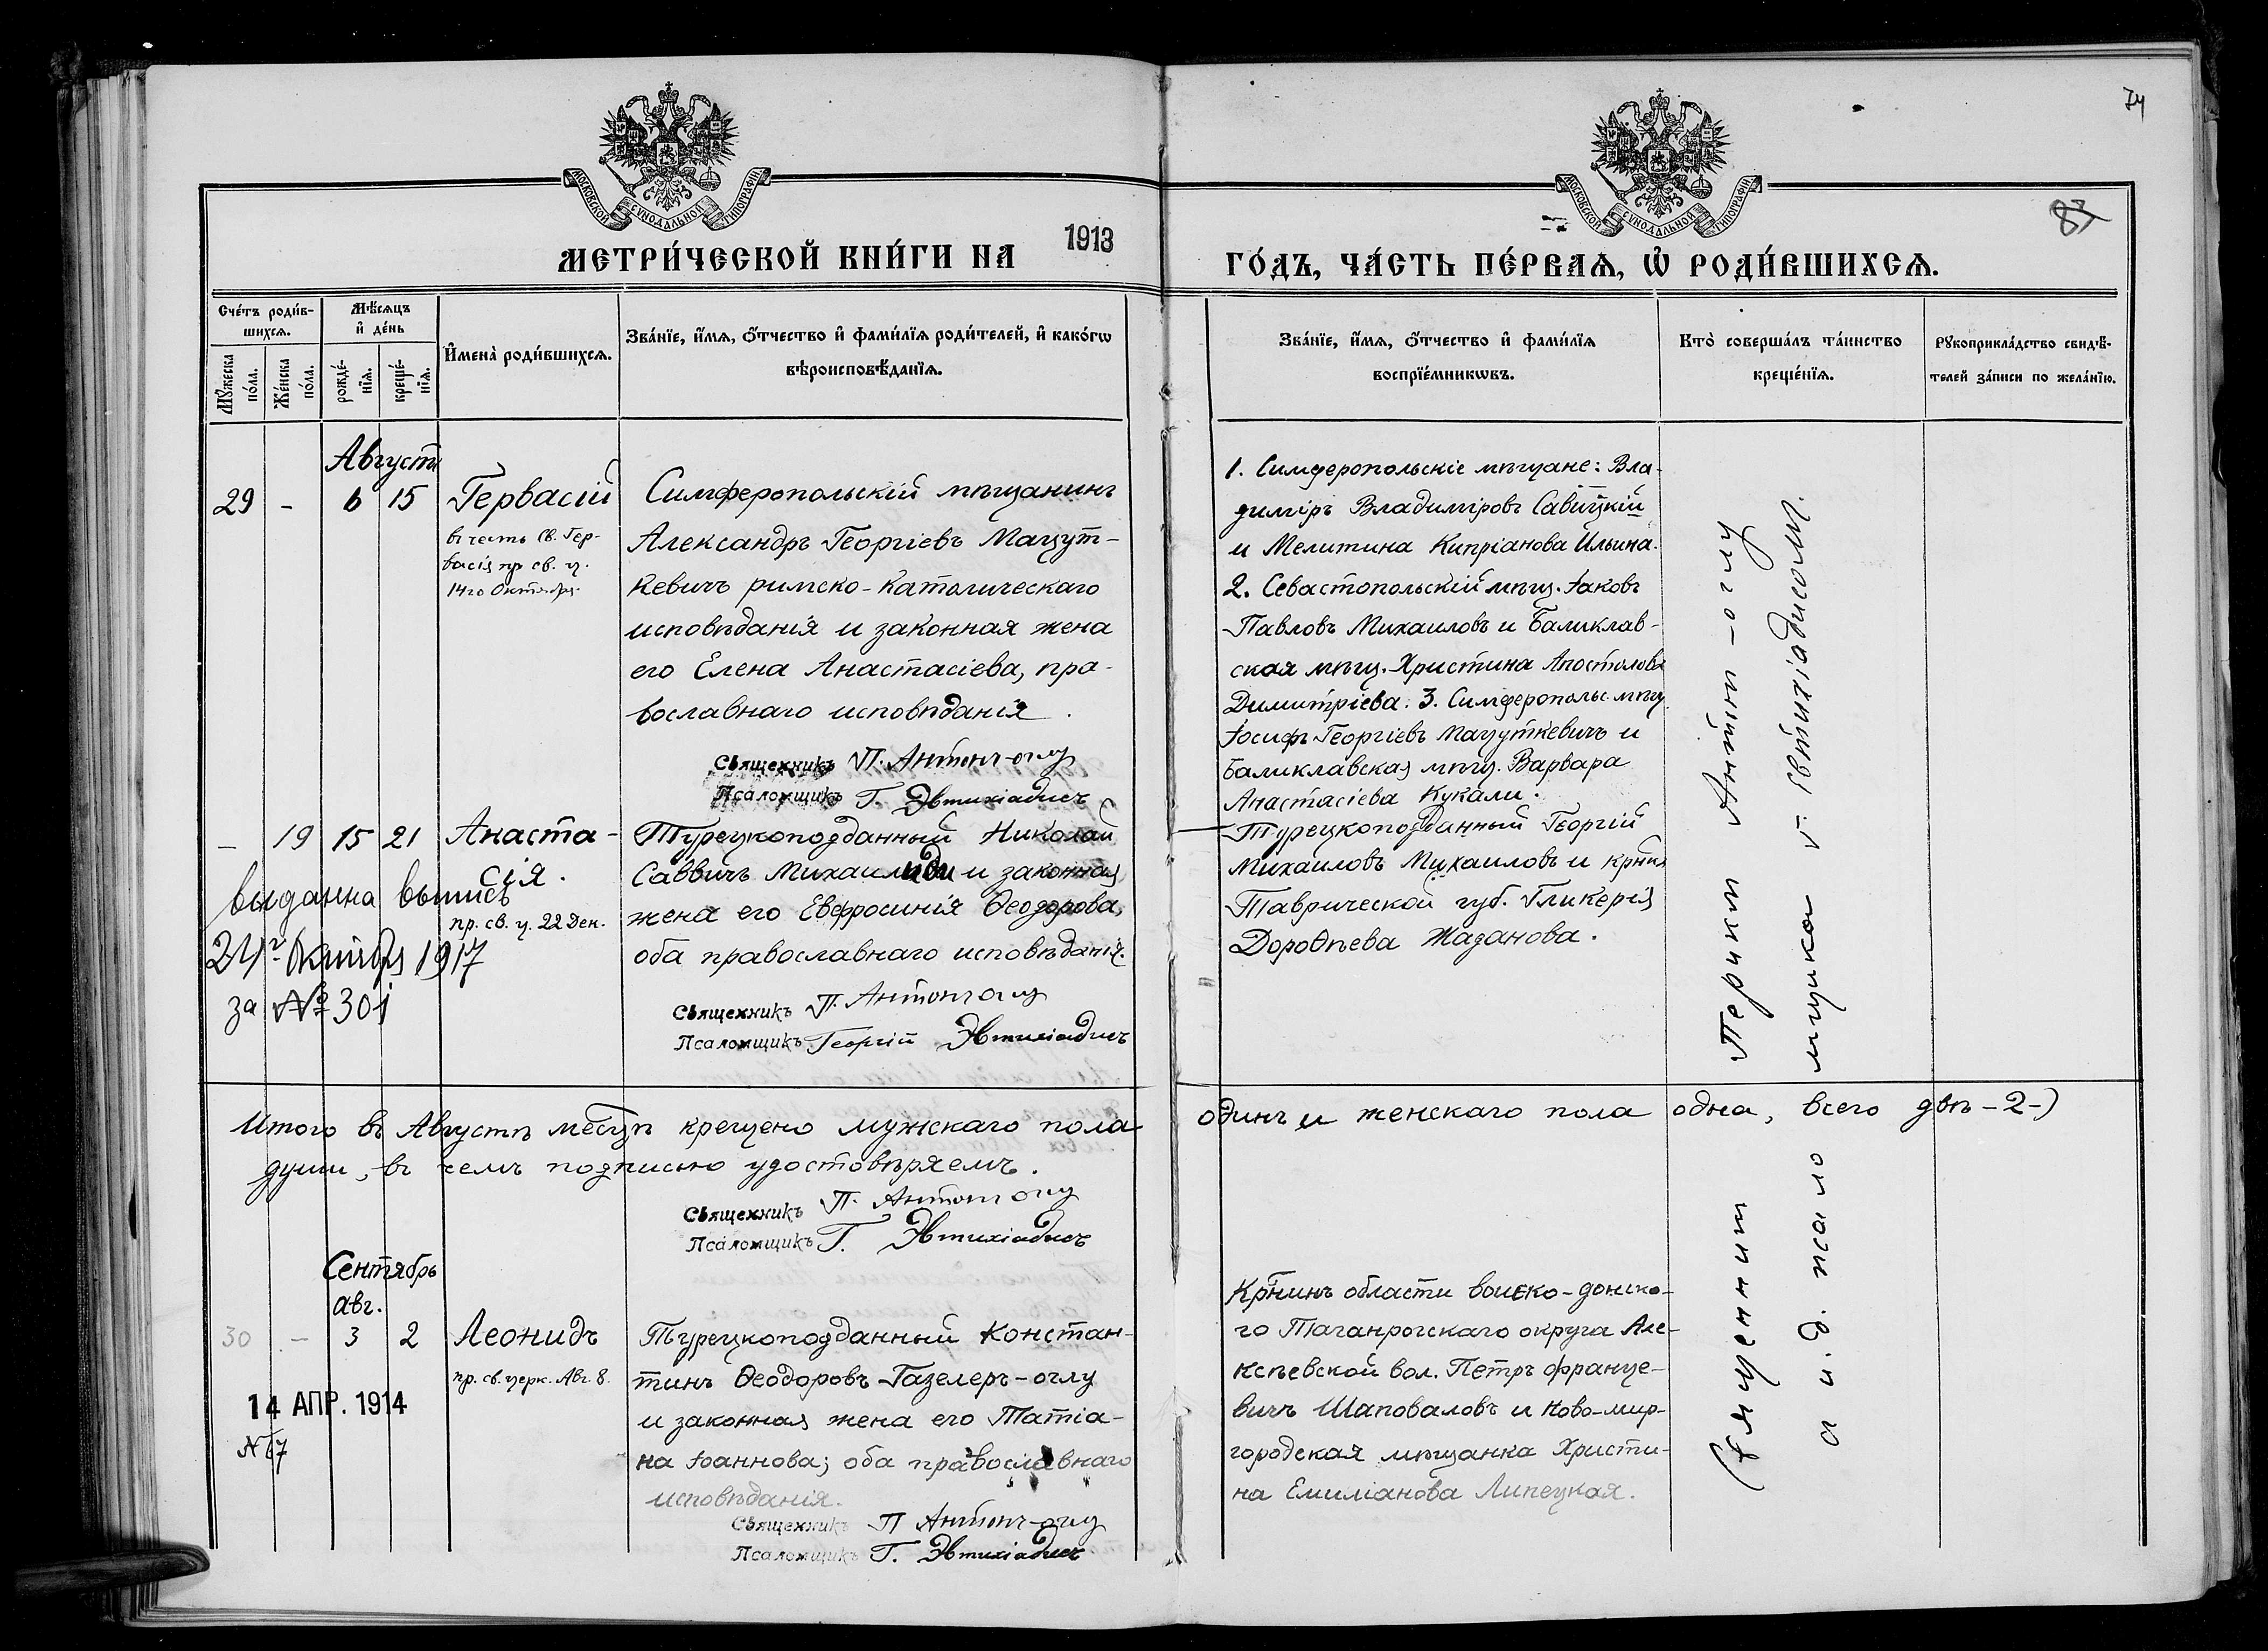 74
83
МОСКОВСКОЙ СѴНОДАЛЬНОЙ ТИПОГРАФІИ
МОСКОВСКОЙ СѴНОДАЛЬНОЙ ТИПОГРАФІИ
МЕТРИ́ЧЕСКОЙ КНИ́ГИ НА 1913 ГО́ДЪ, ЧА́СТЬ ПЕ́РВАѦ, Ѡ РОДИ́ВШИХСѦ.
Сче́тъ роди́в-
шихсѧ.
Мꙋ́жеска
по́ла.
Же́нска
по́ла.
Мѣ́сѧцъ
и҆ де́нь
рожде́-
нїѧ.
креще́-
нїѧ.
И҆мена̀ роди́вшихсѧ.
Зва́нїе, и҆́мѧ, ѻ҆́тчество и҆ фами́лїѧ роди́телей, и҆ како́гѡ
вѣроисповѣ́данїѧ.
Зва́нїе, и҆́мѧ, ѻ҆́тчество и҆ фами́лїѧ
воспрїе́мникѡвъ.
Кто̀ соверша́лъ та́инство
креще́нїѧ.
Рꙋкоприкла́дство свидѣ́-
телей за́писи по жела́нїю.
Августъ
29 - 6 15 Гервасій
въ честь св. Гер-
васія пр св. ц.
14го Октября.
Симферопольскій мѣщанинъ
Александръ Георгіевъ Мацут-
кевичъ римско-католическаго
исповѣданія и законная жена
его Елена Анастасіева, пра-
вославнаго исповѣданія.
Священникъ П. Антонъ-оглу
Псаломщикъ Г. Эвтихіадисъ
1. Симферопольскіе мѣщане: Вла-
диміръ Владиміровъ Савицкій
и Мелитина Кипріанова Ильина.
2. Севастопольскій мѣщ. Іаковъ
Павловъ Михаиловъ и Балаклав-
ская мѣщ. Христина Апостолова
Димитріева. 3. Симферопольс. мѣщ.
Іосифъ Георгіевъ Мацуткевичъ и
Балаклавская мѣщ. Варвара
Анастасіева Кукали.
- 19 15 21 Анаста-
сія.
пр. св. ц. 22 Дек.
выданна выпись
24го Октября 1917
за № 301
Турецкоподданный Николай
Саввичъ Михаилиди и законная
жена его Евфросинія Ѳеодорова,
оба православнаго исповѣданія.
Священникъ П. Антонъ оглу
Псаломщикъ Георгій Эвтихіадисъ
Турецкоподданный Георгій
Михаиловъ Михаиловъ и крнка
Таврической губ. Гликерія
Дороѳѣева Жаданова.
Итого въ Августѣ мѣсцѣ крещено мужскаго пола одинъ и женскаго пола одна, всего двѣ -2-)
души, въ чемъ подписью удостовѣряемъ.
Священникъ П. Антонъ оглу
Псаломщикъ Г. Эвтихіадисъ
Сентябрь
Авг.
30 - 3 2 Леонидъ
пр. св. церк. Авг. 8.
14 АПР. 1914
№ 67
Турецкоподданный Констан-
тинъ Ѳеодоровъ Газелеръ-оглу
и законная жена его Татіа-
на Іоаннова; оба православнаго
исповѣданія.
Священникъ П Антонъ-оглу
Псаломщикъ Г. Эвтихіадисъ
Крнинъ области воиско-донско-
го Таганрогскаго округа Але-
ксѣевской вол. Петръ Франце-
вичъ Шаповаловъ и Ново-мир-
городская мѣщанка Христи-
на Емиліанова Липецкая.
Священникъ Антонъ-оглу
и.д. псало мщика Г. Евтихіадисомъ.